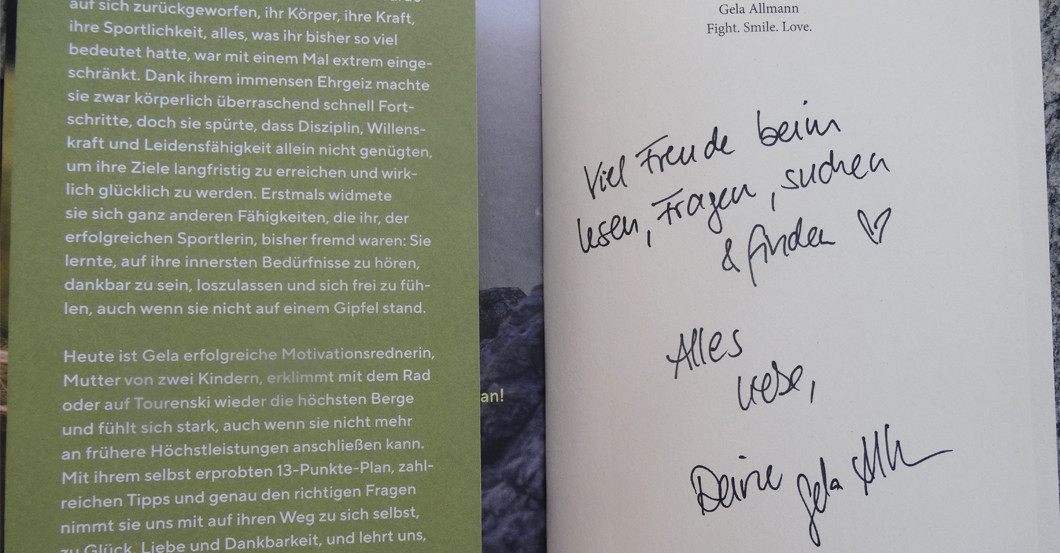 auf sich zurückgeworfen, ihr Körper, ihre Kraft,
ihre Sportlichkeit, alles, was ihr bisher so viel
bedeutet hatte, war mit einem Mal extrem einge-
schränkt. Dank ihrem immensen Ehrgeiz machte
sie zwar körperlich überraschend schnell Fort-
schritte, doch sie spürte, dass Disziplin, Willens-
kraft und Leidensfähigkeit allein nicht genügten,
um ihre Ziele langfristig zu erreichen und wirk-
lich glücklich zu werden. Erstmals widmete
sie sich ganz anderen Fähigkeiten, die ihr, der
erfolgreichen Sportlerin, bisher fremd waren: Sie
lernte, auf ihre innersten Bedürfnisse zu hören,
dankbar zu sein, loszulassen und sich frei zu füh-
len, auch wenn sie nicht auf einem Gipfel stand.
Heute ist Gela erfolgreiche Motivationsrednerin,
Mutter von zwei Kindern, erklimmt mit dem Rad
oder auf Tourenski wieder die höchsten Berge
und fühlt sich stark, auch wenn sie nicht mehr
an frühere Höchstleistungen anschließen kann.
Mit ihrem selbst erprobten 13-Punkte-Plan, zahl-
reichen Tipps und genau den richtigen Fragen
nimmt sie uns mit auf ihren Weg zu sich selbst,
zu Glück, Liebe und Dankbarkeit, und lehrt uns,
an!
Gela Allmann
Fight. Smile. Love.
Viel Freude beim
lesen, Fragen, suchen
& finden ♡
Alles
Liebe,
Deine Gela All